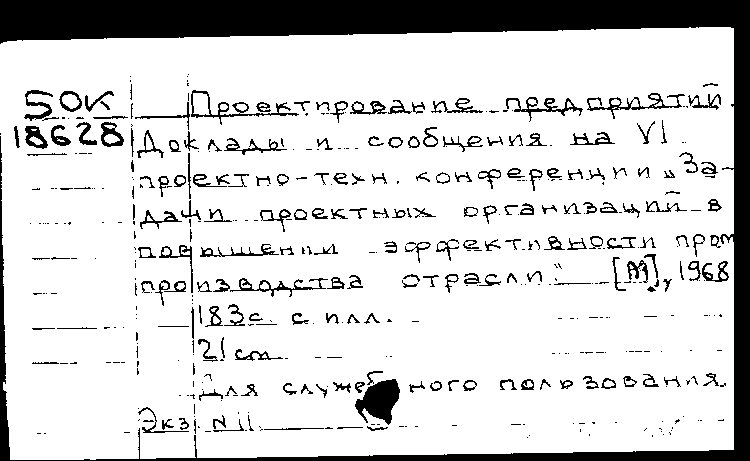 50К Проектирование предприятий.
18628 Доклады и сообщения на VI
проектно-техн. конференции „За-
дачи проектных организаций в
повышении эффективности пром
производства отрасли". [М], 1968
183с. с илл.
21 см
Для служебного пользования
Экз N 11